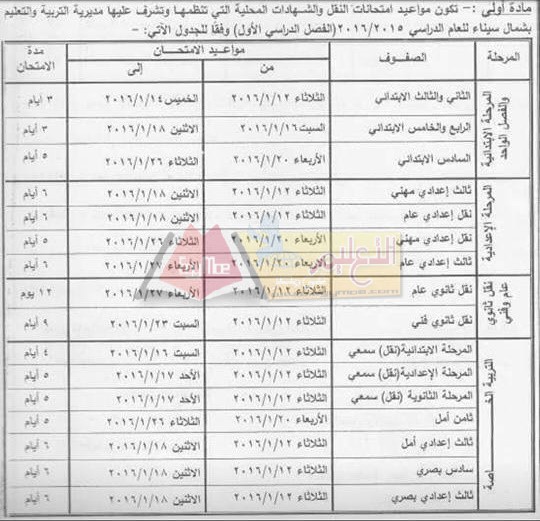 مادة أولى :- تكون مواعيد امتحانات النقل والشهادات المحلية التي تنظمها وتشرف عليها مديرية التربية والتعليم
بشمال سيناء للعام الدراسي ٢٠١٦/٢٠١٥ (الفصل الدراسي الأول) وفقا للجدول الآتي:-
المرحلة الصفوف مواعيد الامتحان مدة الامتحان
من إلى
المرحلة الإبتدائية والفصل الواحد
الثاني والثالث الابتدائي الثلاثاء ٢٠١٦/١/١٢ الخميس ٢٠١٦/١/١٤ ٣ أيام
الرابع والخامس الابتدائي السبت ٢٠١٦/١/١٦ الاثنين ٢٠١٦/١/١٨ ٣ أيام
السادس الابتدائي الأربعاء ٢٠١٦/١/٢٠ الثلاثاء ٢٠١٦/١/٢٦ ٥ أيام
المرحلة الإعدادية
ثالث إعدادي مهني الثلاثاء ٢٠١٦/١/١٢ الاثنين ٢٠١٦/١/١٨ ٦ أيام
نقل إعدادي عام الثلاثاء ٢٠١٦/١/١٢ الاثنين ٢٠١٦/١/١٨ ٦ أيام
نقل إعدادي مهني الأربعاء ٢٠١٦/١/٢٠ الثلاثاء ٢٠١٦/١/٢٦ ٥ أيام
ثالث إعدادي عام الأربعاء ٢٠١٦/١/٢٠ الأربعاء ٢٠١٦/١/٢٧ ٦ أيام
نقل ثانوي عام وفني
نقل ثانوي عام الثلاثاء ٢٠١٦/١/١٢ الأربعاء ٢٠١٦/١/٢٧ ١٢ يوم
نقل ثانوي فني الثلاثاء ٢٠١٦/١/١٢ السبت ٢٠١٦/١/٢٣ ٩ أيام
التربية الخاصة
المرحلة الابتدائية(نقل) سمعي الثلاثاء ٢٠١٦/١/١٢ السبت ٢٠١٦/١/١٦ ٤ أيام
المرحلة الإعدادية(نقل) سمعي الثلاثاء ٢٠١٦/١/١٢ الأحد ٢٠١٦/١/١٧ ٥ أيام
المرحلة الثانوية (نقل) سمعي الثلاثاء ٢٠١٦/١/١٢ الأحد ٢٠١٦/١/١٧ ٥ أيام
ثامن أمل الأربعاء ٢٠١٦/١/٢٠ الثلاثاء ٢٠١٦/١/٢٦ ٥ أيام
ثالث إعدادي أمل الثلاثاء ٢٠١٦/١/١٢ الاثنين ٢٠١٦/١/١٨ ٦ أيام
سادس بصري الثلاثاء ٢٠١٦/١/١٢ الاثنين ٢٠١٦/١/١٨ ٦ أيام
ثالث إعدادي بصري الثلاثاء ٢٠١٦/١/١٢ الاثنين ٢٠١٦/١/١٨ ٦ أيام